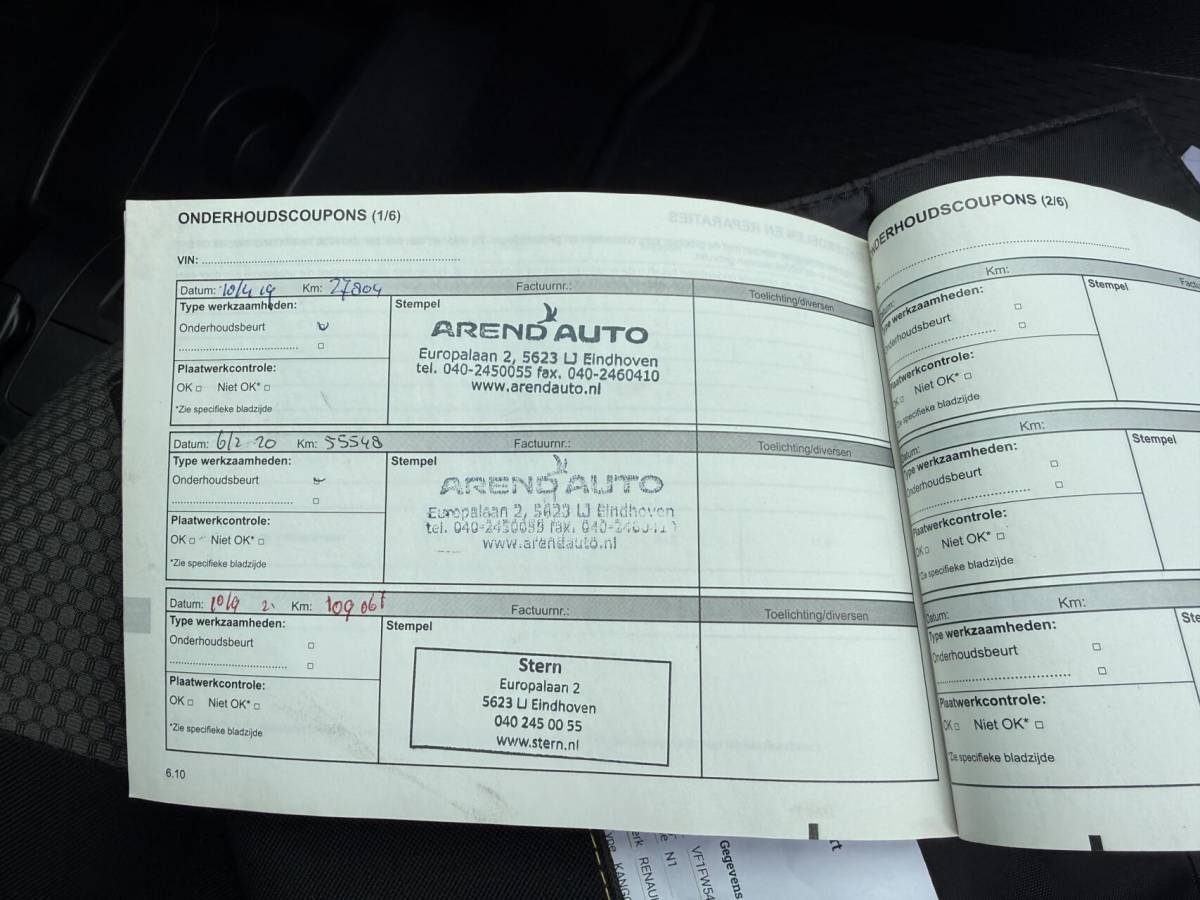 ONDERHOUDSCOUPONS (1/6)
VIN:
Datum: 10/4 19 Km: 27804 Factuurnr.: Toelichting/diversen
Type werkzaamheden:
Onderhoudsbeurt
Plaatwerkcontrole:
OK Niet OK*
*Zie specifieke bladzijde
Stempel
AREND AUTO
Europalaan 2, 5623 LJ Eindhoven
tel. 040-2450055 fax. 040-2460410
www.arendauto.nl
Datum: 6/2 20 Km: 55548 Factuurnr.: Toelichting/diversen
Type werkzaamheden:
Onderhoudsbeurt
Plaatwerkcontrole:
OK Niet OK*
*Zie specifieke bladzijde
Stempel
AREND AUTO
Europalaan 2, 5623 LJ Eindhoven
tel. 040-2450055 fax.
www.arendauto.nl
Datum: 10/9 2. Km: 109 067 Factuurnr.: Toelichting/diversen
Type werkzaamheden:
Onderhoudsbeurt
Plaatwerkcontrole:
OK Niet OK*
*Zie specifieke bladzijde
Stempel
Stern
Europalaan 2
5623 LJ Eindhoven
040 245 00 55
www.stern.nl
6.10
ONDERHOUDSCOUPONS (2/6)
Datum: Km:
Type werkzaamheden:
Onderhoudsbeurt
Plaatwerkcontrole:
OK Niet OK*
*Zie specifieke bladzijde
Stempel
Datum: Km:
Type werkzaamheden:
Onderhoudsbeurt
Plaatwerkcontrole:
OK Niet OK*
*Zie specifieke bladzijde
Stempel
Datum: Km:
Type werkzaamheden:
Onderhoudsbeurt
Plaatwerkcontrole:
OK Niet OK*
*Zie specifieke bladzijde
Gegevens
VF1FW54
N1
RENAUL
KANGO